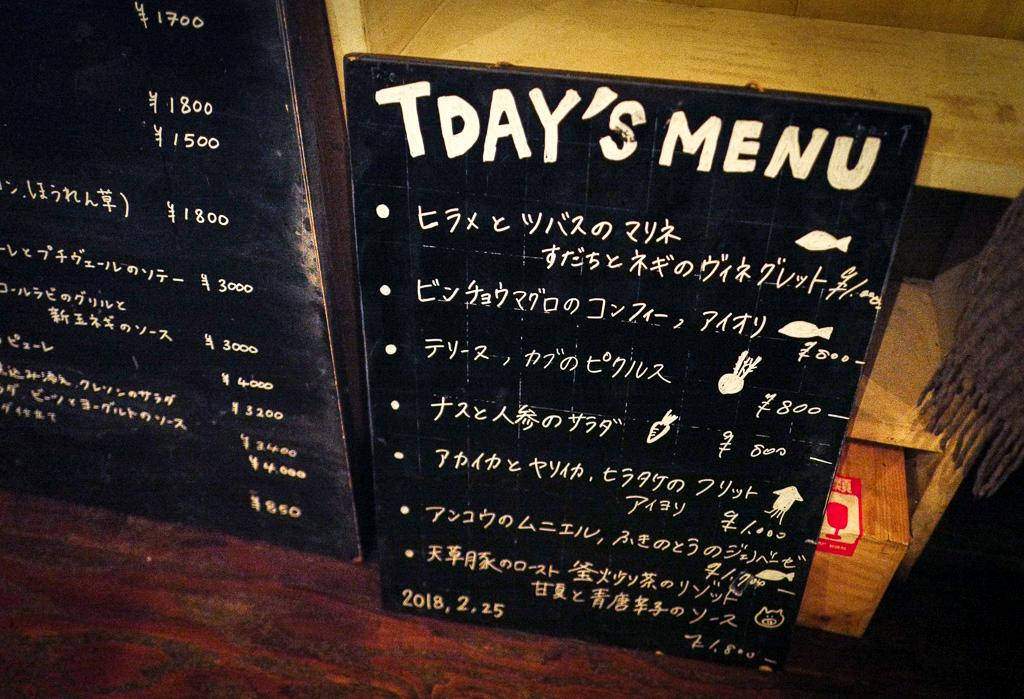 ¥1700
¥1800
¥1500
ン.(ほうれん草) ¥1800
ーレとプチヴェールのソテー ¥3000
コールラビのグリルと
新玉ネギのソース ¥3000
ピューレ
¥4000
クレソンのサラダ ¥3200
ビーツとヨーグルトのソース
ダ仕立て ¥3400
¥4.000
¥850
TDAY'S MENU
• ヒラメと ツバスの マリネ
すだちと ネギの ヴィネグレット ¥1.000
• ビンチョウマグロの コンフィー, アイオリ
¥800-
• テリーヌ, カブの ピクルス
¥800-
• ナスと人参の サラダ
¥800-
• アカイカと ヤリイカ, ヒラタケの フリット
アイヨリ
¥1,000
• アンコウの ムニエル, ふきのとうの ジェノベーゼ
• 天草月豚の ロースト 釜炒り茶の リゾット
甘夏と青唐辛子の ソース
2018,2.25
¥1,800-